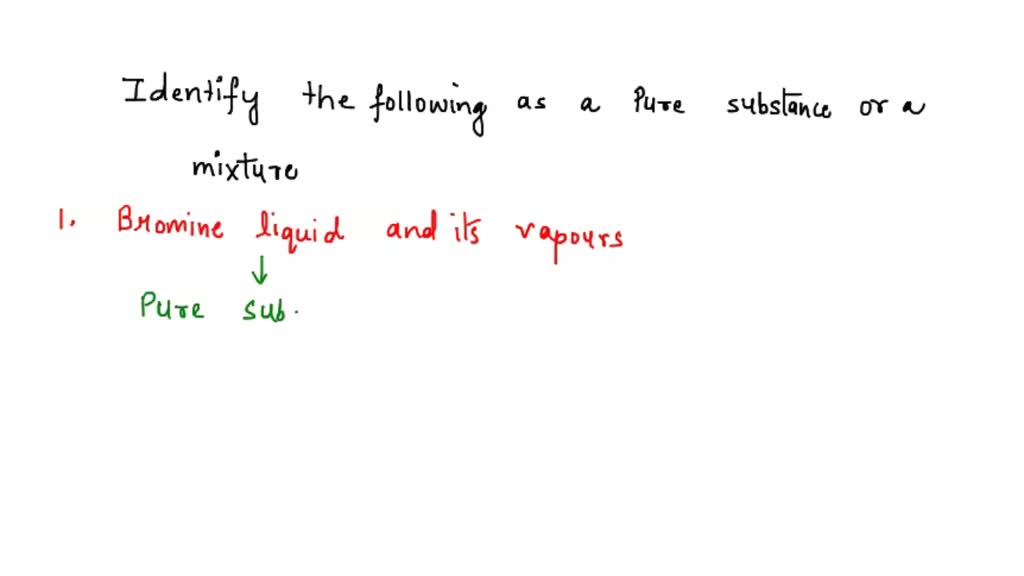 Identify the following as a Pure substance or a
mixture
1. Bromine liquid and its vapours
↓
Pure sub.